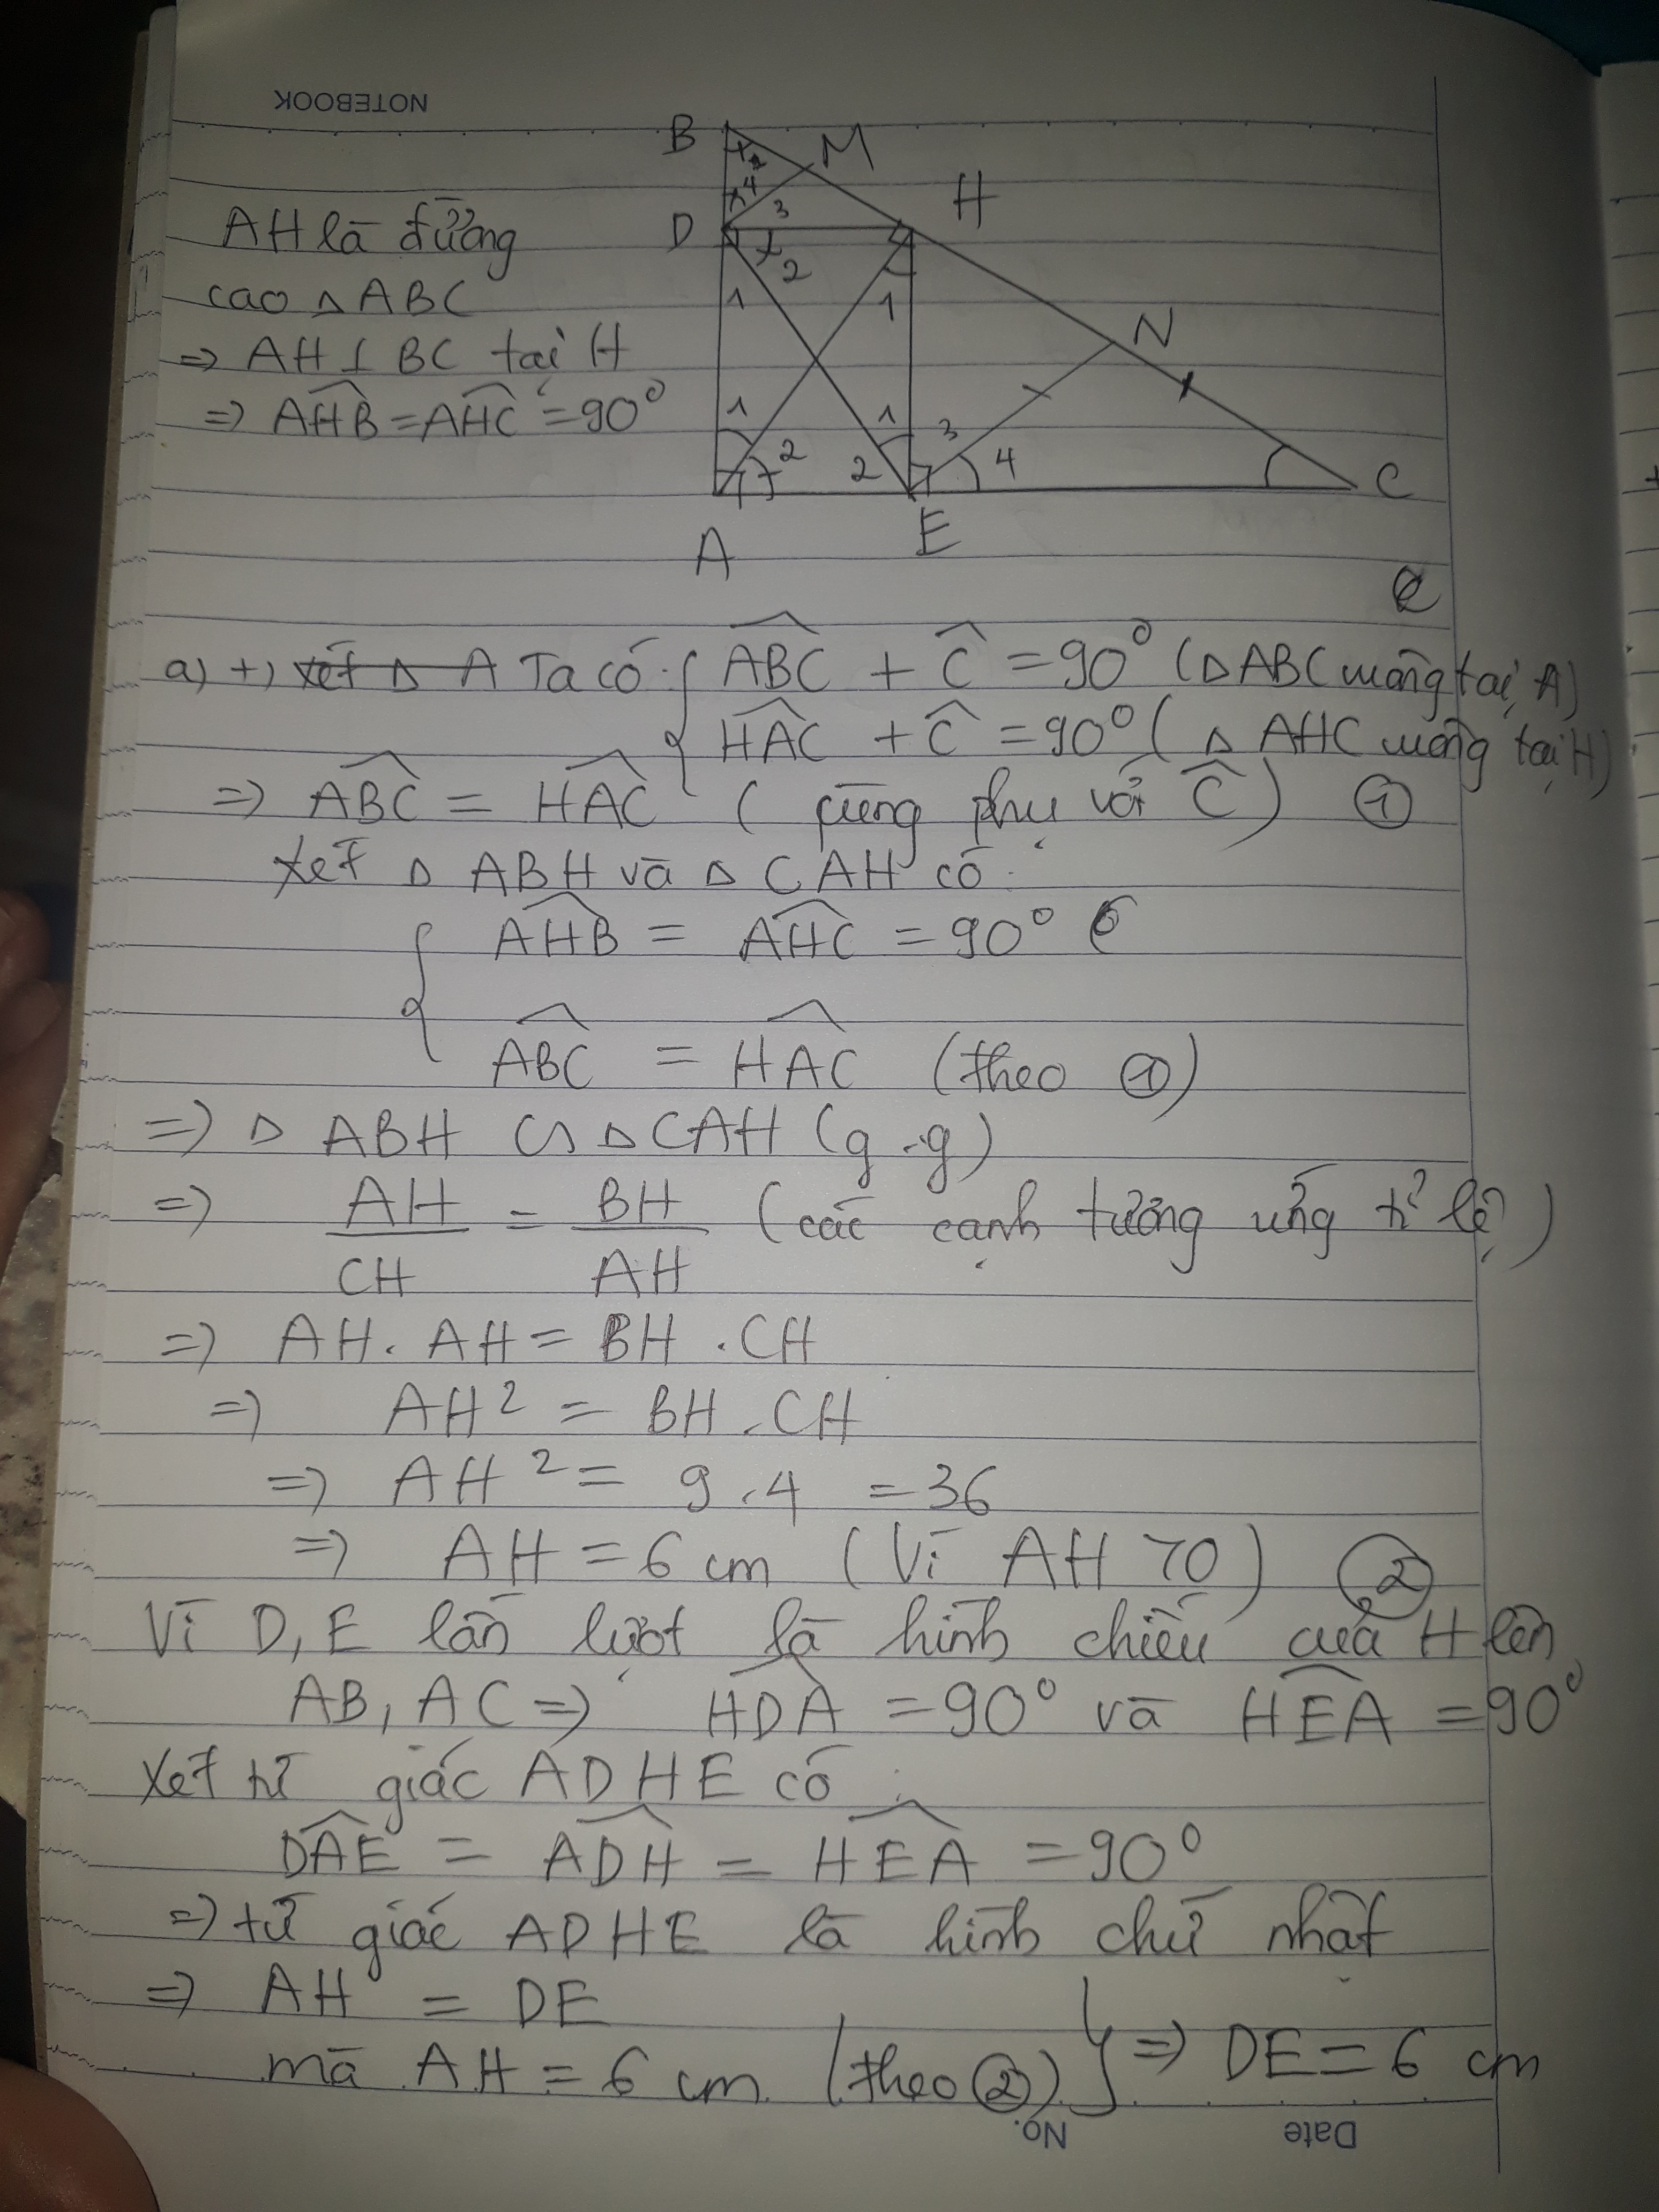 NOTEBOOK
B
M
2
4
3
H
AH là đường
D
2
cao △ABC
1
1
N
⇒ AH ⊥ BC tại H
⇒ AHB = AHC = 90°
1
1
3
2
2
4
C
A
E
a) +) xét △ A Ta có: { ABC + C = 90° (△ABC vuông tại A)
HAC + C = 90° (△ AHC vuông tại H)
⇒ ABC = HAC (cùng phụ với C) ①
Xét △ ABH và △ CAH có:
{ AHB = AHC = 90°
ABC = HAC (theo ①)
⇒ △ ABH ∽ △ CAH (g.g)
⇒ AH/CH = BH/AH (các cạnh tương ứng tỉ lệ)
⇒ AH. AH = BH . CH
⇒ AH² = BH . CH
⇒ AH² = 9 . 4 = 36
⇒ AH = 6 cm (Vì AH > 0) ②
Vì D, E lần lượt là hình chiếu của H lên
AB, AC ⇒ HDA = 90° và HEA = 90°
Xét tứ giác ADHE có:
DAE = ADH = HEA = 90°
⇒ tứ giác ADHE là hình chữ nhật
⇒ AH = DE
mà AH = 6 cm (theo ②) } ⇒ DE = 6 cm
No.
Date